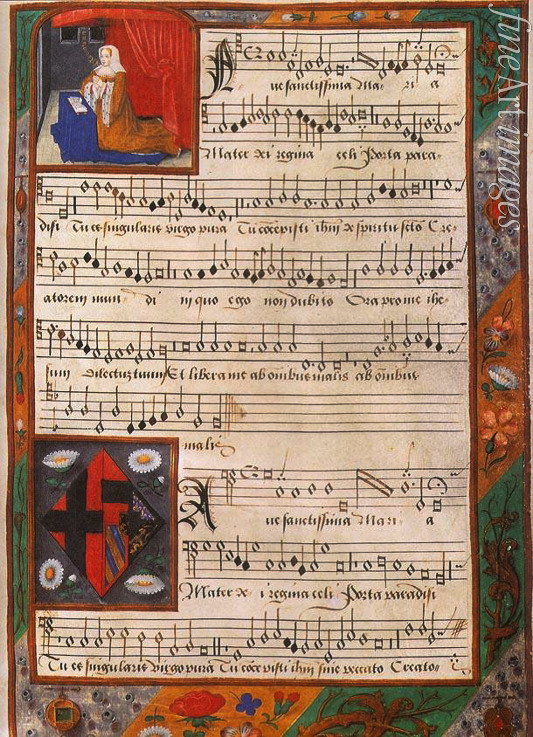 Ave sanctissima Mari a
Mater dei regina celi Porta para-
disi Tu es singularis virgo pura Tu cōcepisti ihm̄ de spiritu scto Cre-
atorem mun di in quo ego non dubito Ora pro me ihe-
sum dilectum tuum Et libera me ab omībus malis ab omībus
malis
Ave sanctissima Mari a
Mater de i regina celi Porta paradisi
Tu es singularis virgo pura Tu cōcepisti ihm̄ sine peccato Creato-
fineArtimages